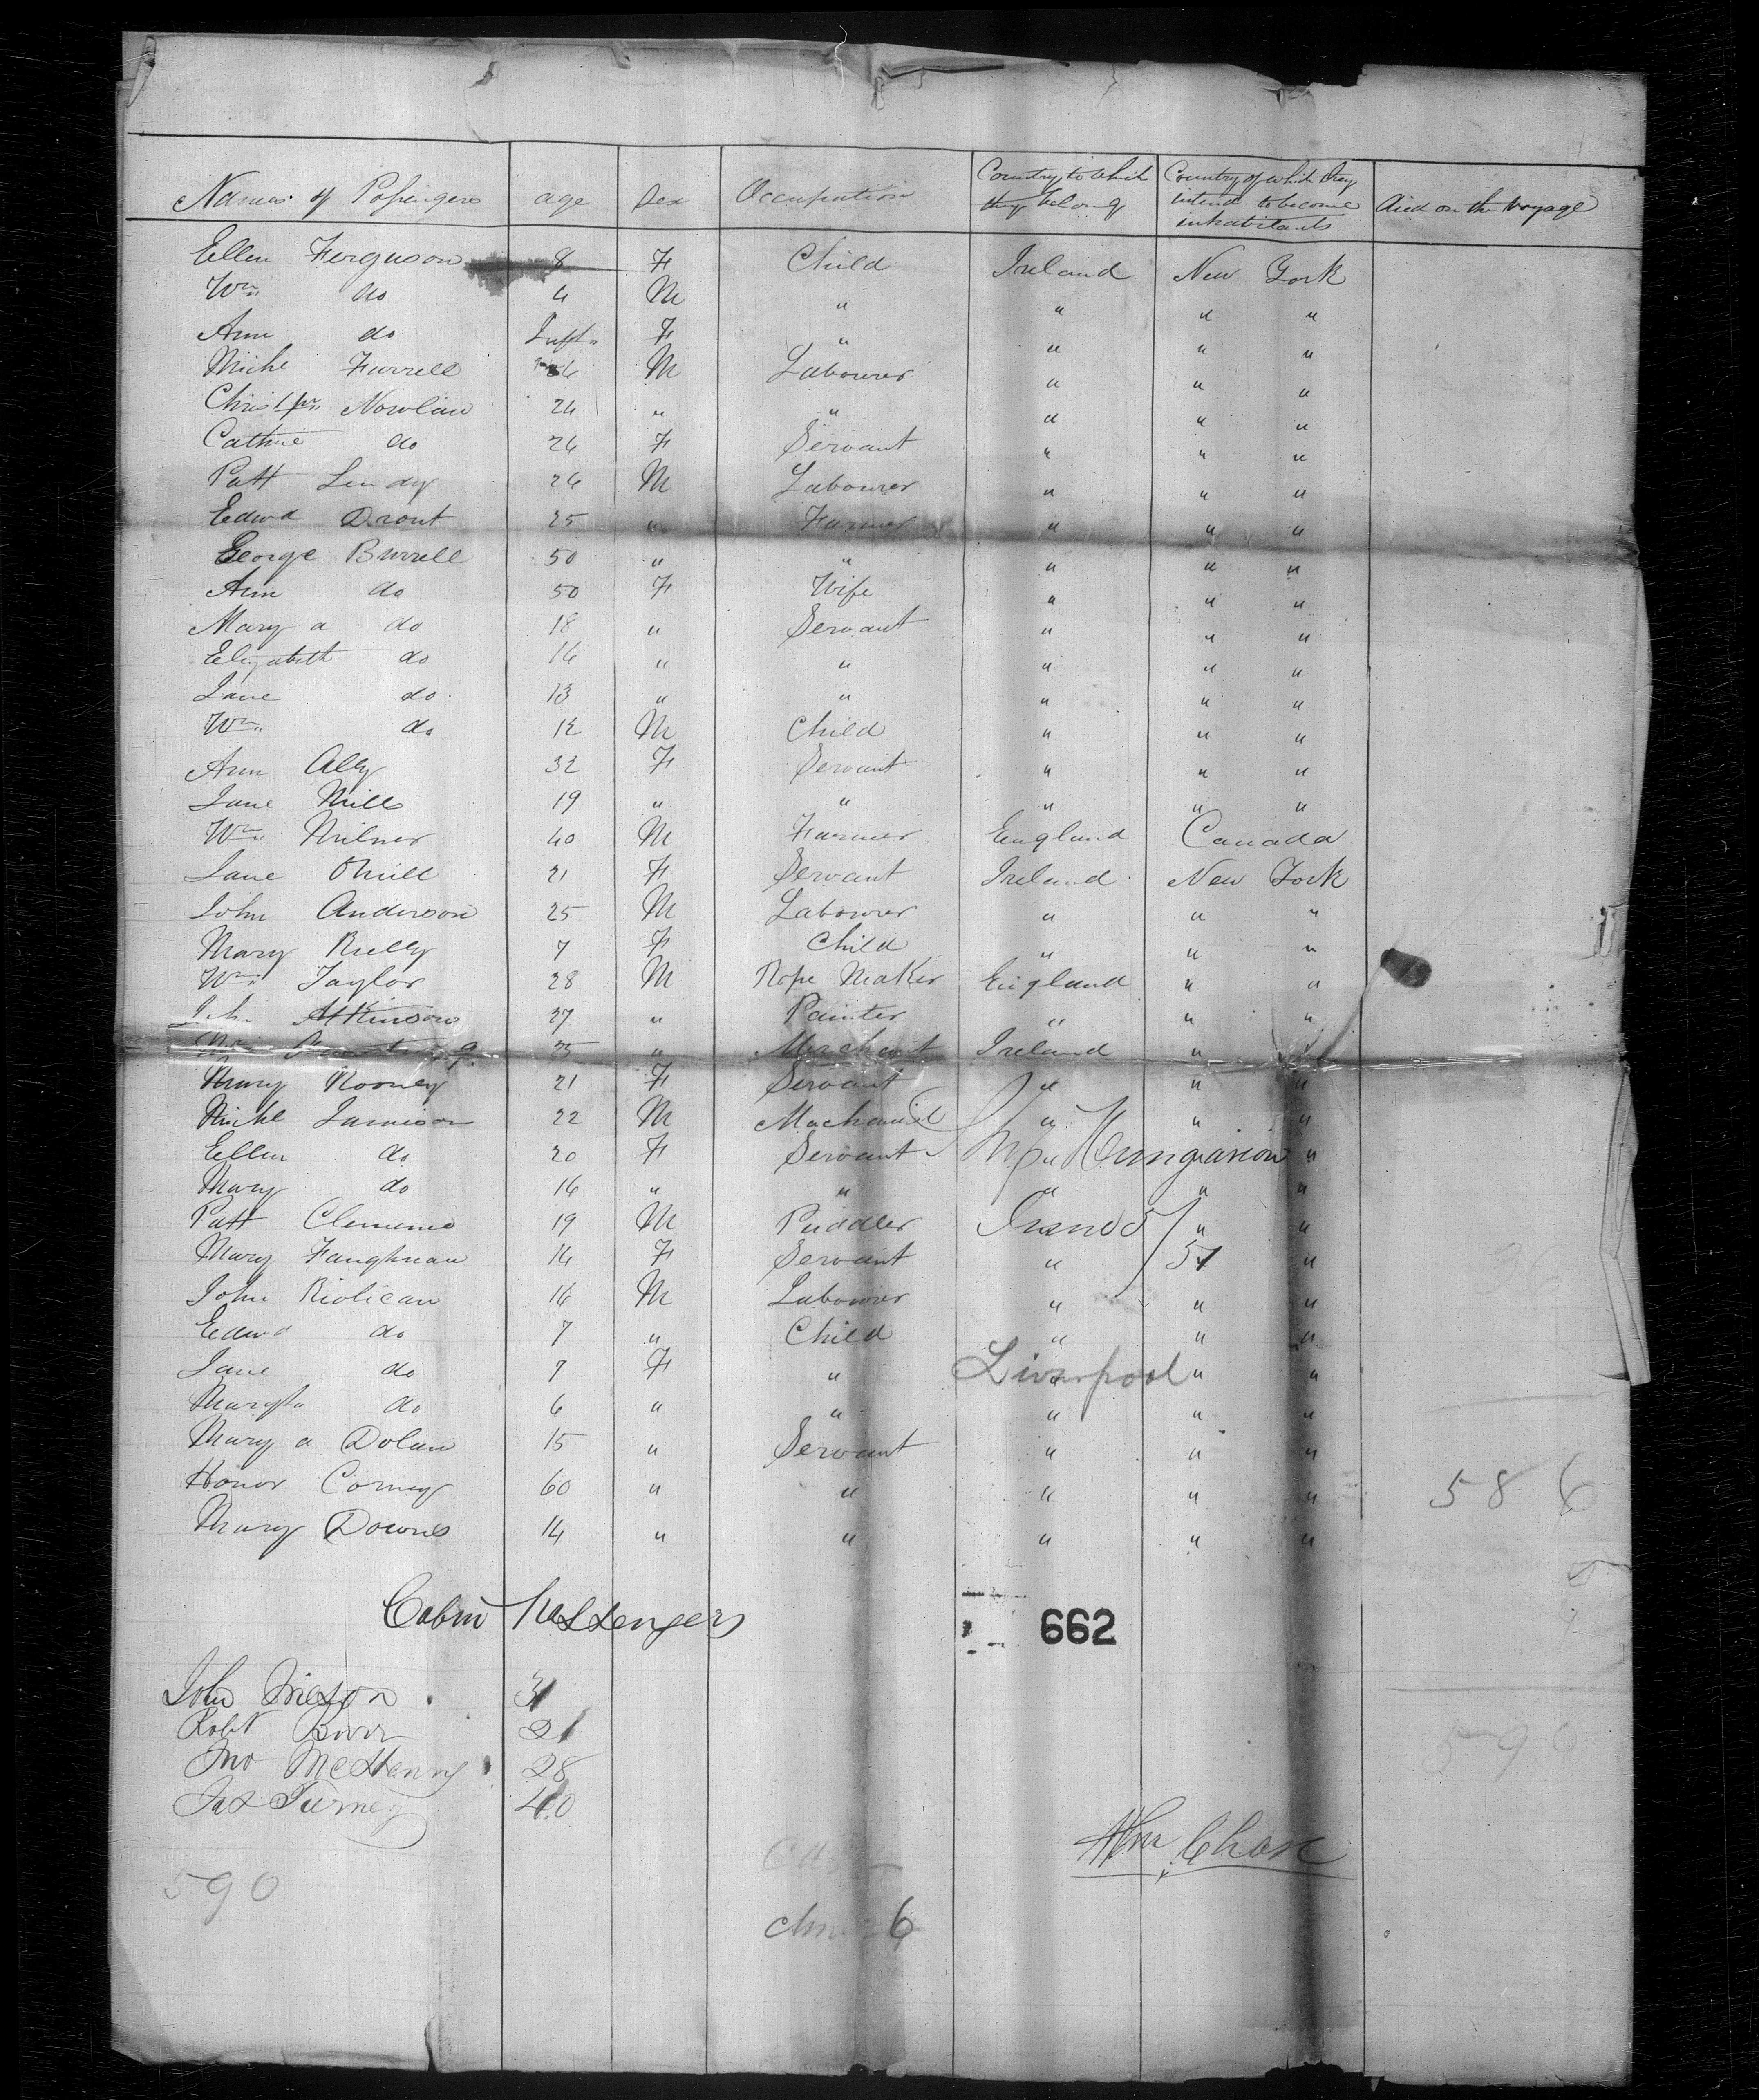 Names of Passengers age Sex Occupation Country to which they belong Country of which they intend to become inhabitants died on the voyage
Ellen Ferguson 8 F Child Ireland New York
Wm do 4 M " " " "
Ann do Inft F " " " "
Michl Farrell M Labourer " " "
Christpr Nowlan 24 " " " " "
Cathne do 24 F Servant " " "
Patt Lundy 24 M Labourer " " "
Edwd Drout 25 " Farmer " " "
George Burrell 50 " " " " "
Ann do 50 F Wife " " "
Mary a do 18 " Servant " " "
Elizabeth do 16 " " " " "
Jane do 13 " " " " "
Wm do 12 M Child " " "
Ann Ally 32 F Servant " " "
Jane Mills 19 " " " " "
Wm Milner 40 M Farmer England Canada
Jane ONeill 21 F Servant Ireland New York
John Anderson 25 M Labourer " " "
Mary Rielly 7 F Child " " "
Wm Taylor 28 M Rope Maker England " "
John Atkinson 27 " Painter " " "
Wm 25 " Merchant Ireland " "
Mary Rooney 21 F Servant " " "
Michl Jamison 22 M Machanic " " "
Ellen do 20 F Servant " " "
Ship Hungarian
Mary do 16 " " " " "
Patt Clemens 19 M Puddler " "
Mary Faughnan 14 F Servant " 51 "
John Riolican 16 M Labourer " " "
Edwd do 7 " Child " " "
Jane do 7 F " " " "
Liverpool
Margta do 6 " " " " "
Mary a Dolan 15 " Servant " " "
Honor Corney 60 " " " " "
586
Mary Downes 14 " " " " "
Cabin Passengers
662
John 31
Robt 21
Jno McHenry 28
Jas Turney 40
590
Wm Chase
590
6